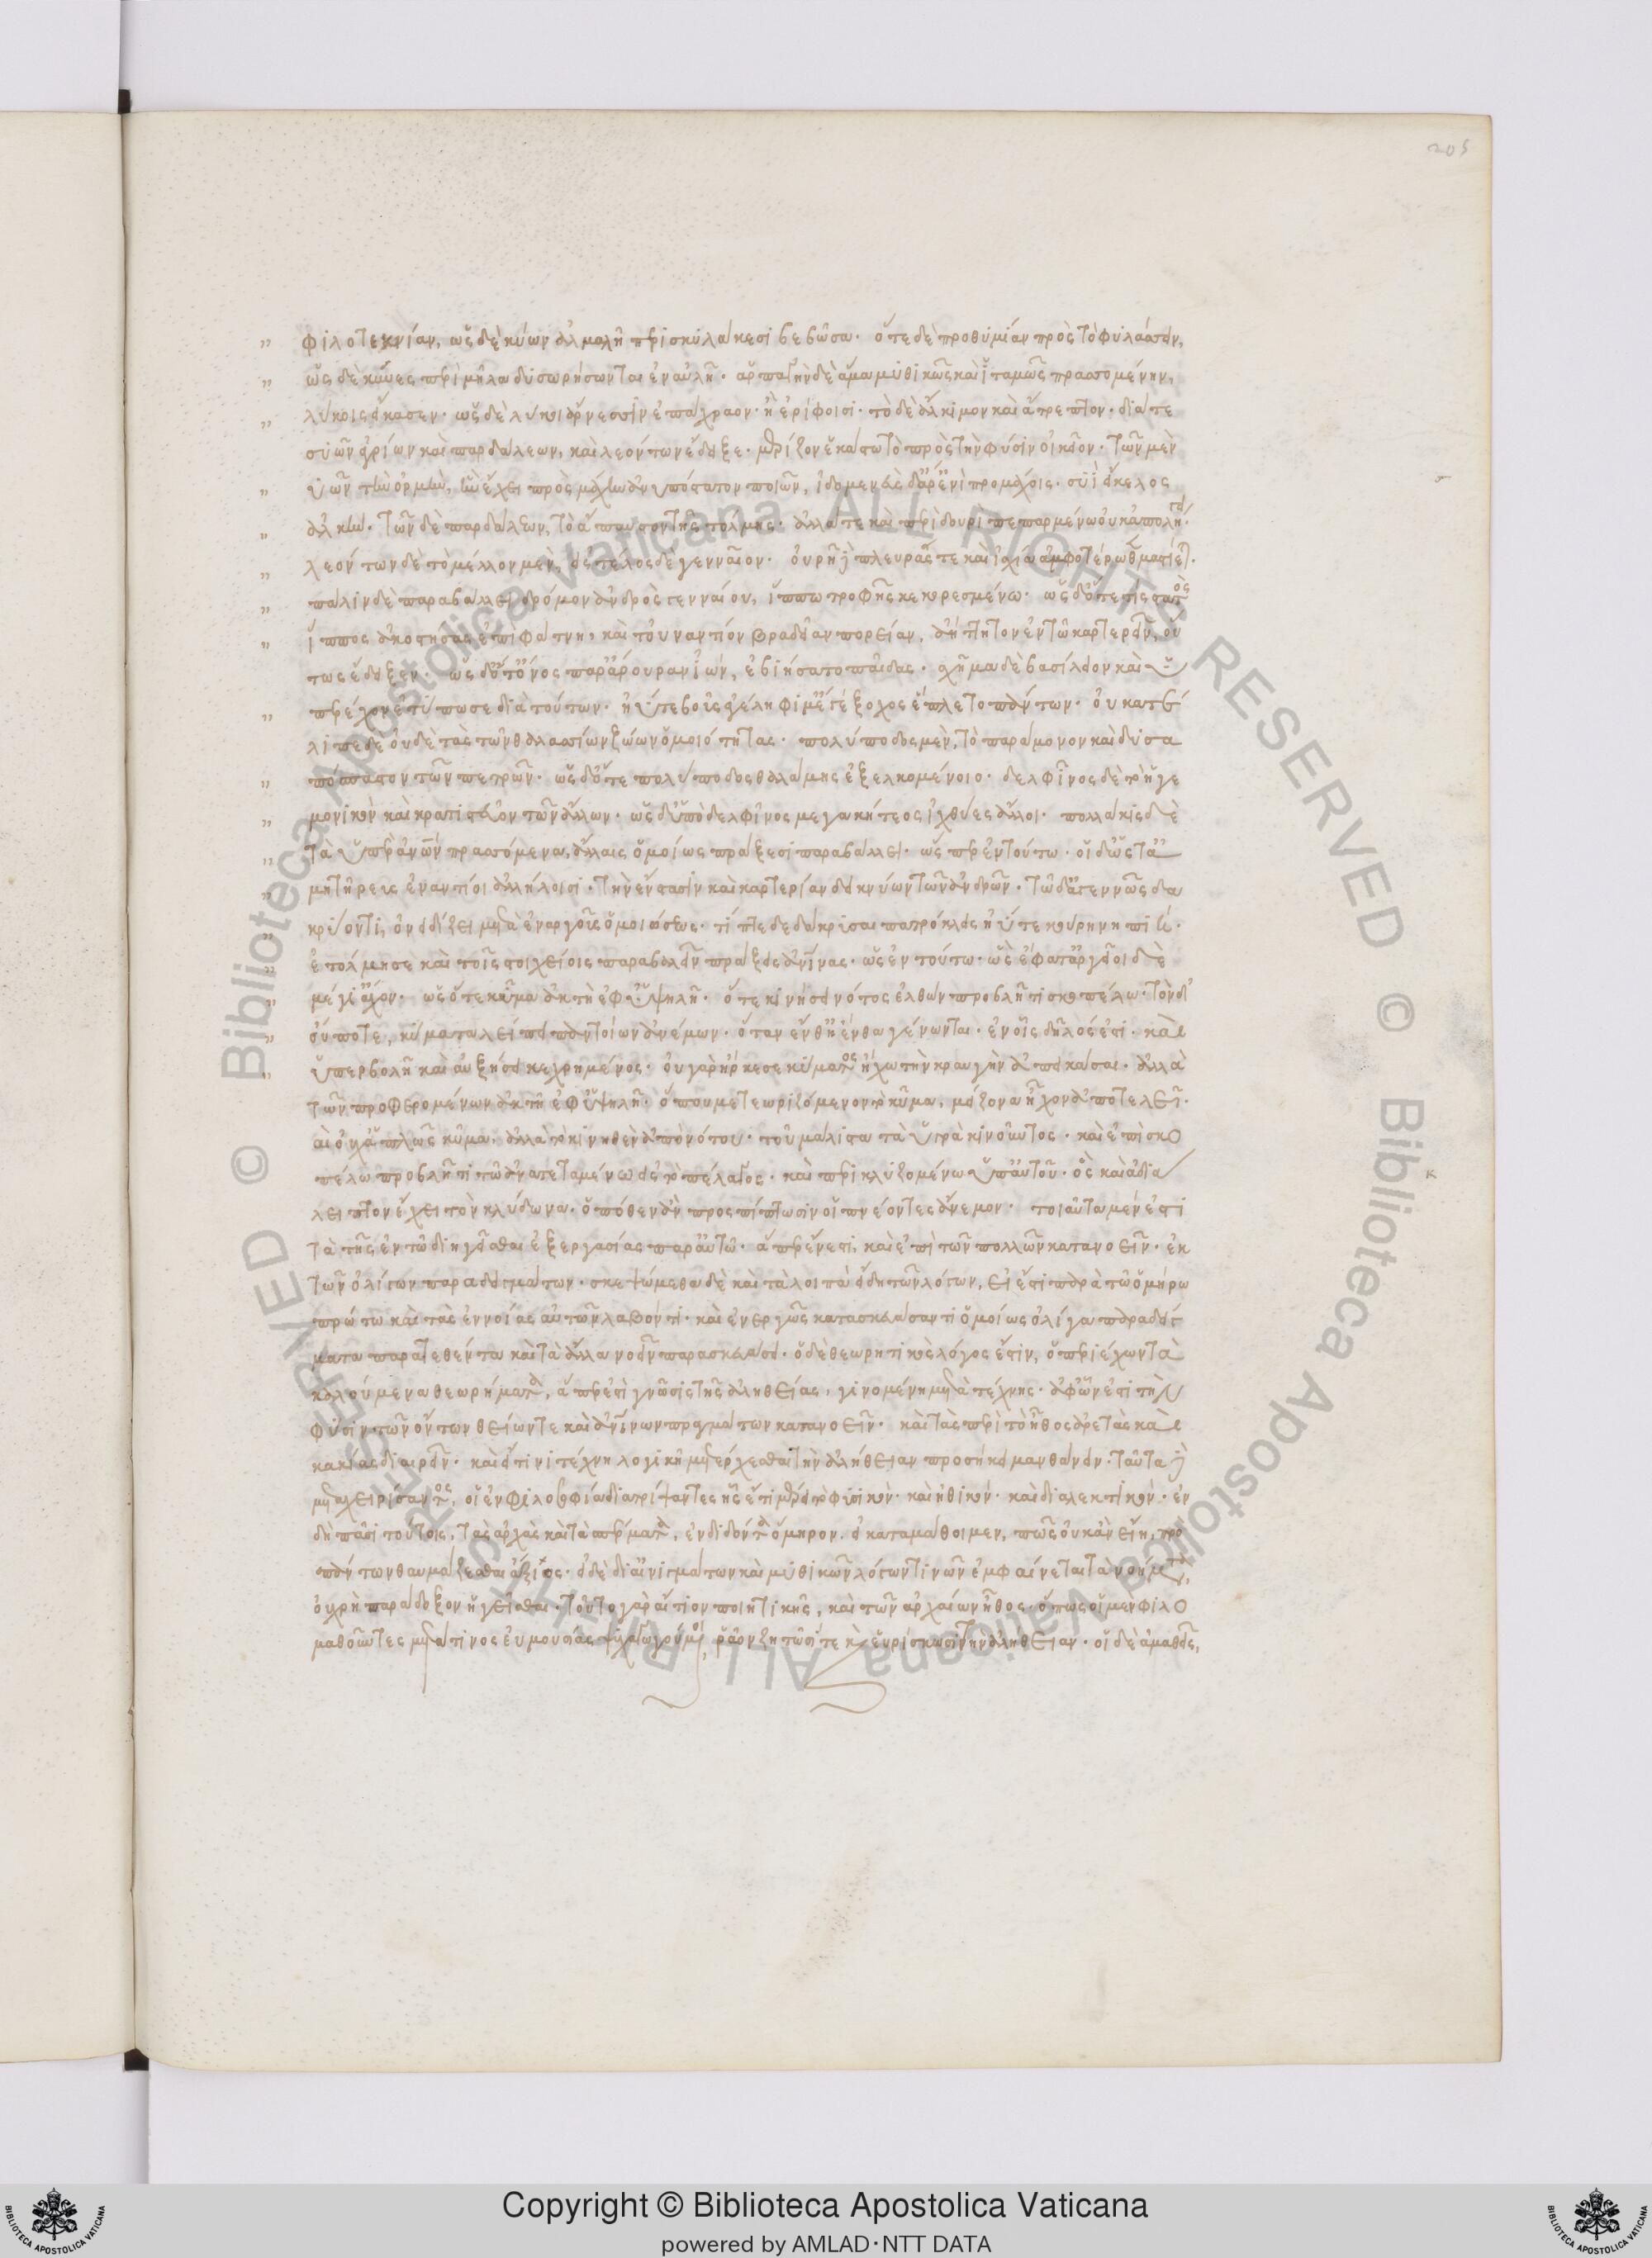 205
φιλοτεκνίαν, ὡς δὲ κύων ἀμαλῆ περὶ σκυλάκεσι βεβῶσα· ὅτε δὲ προθυμίαν πρὸς τὸ φυλάσσειν,
ὡς δὲ κύνες περὶ μῆλα δυσωρήσωνται ἐν αὐλῇ· ἁρπαγὴν δὲ ἅμα μυθικῶς καὶ ἰταμῶς πρασσομένην,
λύκοις εἴκασεν· ὡς δὲ λύκοι ἄρνεσσιν ἐπέχραον· ἢ ἐρίφοισι· τὸ δὲ ἄλκιμον καὶ ἄτρεπτον· διά τε
συῶν ἀγρίων καὶ παρδάλεων, καὶ λεόντων ἔδειξε· μερίζων ἑκάστω τὸ πρὸς τὴν φύσιν οἰκεῖον· τῶν μὲν
ὑῶν τὴν ὁρμὴν, ἣν ἔχει πρὸς μάχην ἀνυπόστατον ποιῶν, ἰδομενεὺς δ' ἄρ' ἐνὶ προμάχοις· συῒ εἴκελος
ἀλκήν· τῶν δὲ παρδάλεων, τὸ ἄπαυστον τῆς τόλμης· ἀλλά τε καὶ περὶ δουρὶ πεπαρμένω οὐκ ἀπολήγει·
λεόντων δὲ τὸ μέλλον μὲν, εἰς τέλος δὲ γενναῖον· οὐρῇ δὲ πλευράς τε καὶ ἰσχία ἀμφοτέρωθεν μαστίεται·
πάλιν δὲ παραβάλλει δρόμον ἀνδρὸς γενναίου, ἵππω τροφῆς κεκορεσμένω· ὡς δ' ὅτε τις στατὸς
ἵππος ἀκοστήσας ἐπὶ φάτνη, καὶ τοὐναντίον βραδεῖαν πορείαν, ἀήττητον ἐν τῶ καρτερεῖν, οὕ
τως ἔδειξεν· ὡς δ' ὅτ' ὄνος παρ' ἄρουραν ἰὼν, ἐβιήσατο παῖδας· σχῆμα δὲ βασίλειον καὶ ὑ
περέχον ἐτύπωσε διὰ τούτων· ἠΰτε βοῦς ἀγέληφι μέγ' ἔξοχος ἔπλετο πάντων· οὐ κατέ
λιπε δὲ οὐδὲ τὰς τῶν θαλασσίων ζώων ὁμοιότητας· πολύποδος μὲν, τὸ παράμονον καὶ δυσα
πόσπαστον τῶν πετρῶν· ὡς δ' ὅτε πολύποδος θαλάμης ἐξελκομένοιο· δελφῖνος δὲ τὸ ἡγε
μονικὸν καὶ κρατιστεῦον τῶν ἄλλων· ὡς δ' ὑπὸ δελφῖνος μεγακήτεος ἰχθύες ἄλλοι· πολλάκις δὲ
τὰ ὑπὲρ ἀνῶν πρασσόμενα, ἄλλαις ὁμοίως πράξεσι παραβάλλει· ὥσπερ ἐν τούτω· οἱ δ' ὥς τ' ἀ
μητῆρες ἐναντίοι ἀλλήλοισι· τὴν ἔνστασιν καὶ καρτερίαν δεικνύων τῶν ἀνδρῶν· τῶ δ' ἀγεννῶς δα
κρύοντι, ὀνειδίζει μετὰ ἐναργοῦς ὁμοιώσεως· τίπτε δεδάκρυσαι πατρόκλεις ἠΰτε κούρη νηπίη·
ἐτόλμησε καὶ τοῖς στοιχείοις παραβαλεῖν πράξεις ἀνίνας· ὡς ἐν τούτω· ὣς ἔφατ' ἀργεῖοι δὲ
μέγ' ἴαχον· ὡς ὅτε κῦμα ἀκτῇ ἐφ' ὑψηλῇ· ὅτε κινήσει νότος ἐλθὼν προβλῆτι σκοπέλω· τὸν δ'
οὔποτε, κύματα λείπει παντοίων ἀνέμων· ὅταν ἔνθ' ἢ ἔνθα γένωνται· ἐν οἷς δῆλός ἐστι· καὶ
ὑπερβολῇ καὶ αὐξήσει κεχρημένος· οὐ γὰρ ἤρκεσε κύματος ἤχω τὴν κραυγὴν ἀπεικάσαι· ἀλλὰ
τῶν προφερομένων ἀκτῇ ἐφ' ὑψηλῇ· ὅπου μετεωριζόμενον τὸ κῦμα, μείζονα ἦχον ἀποτελεῖ·
αὶ οὐχ' ἁπλῶς κῦμα· ἀλλὰ τὸ κινηθὲν ἀπὸ νότου· τοῦ μάλιστα τὰ ὑγρὰ κινοῦντος· καὶ ἐπὶ σκο
πέλω προβλῆτι τῶ ἀναπεταμένω εἰς τὸ πέλαγος· καὶ περικλυζομένω ὑπ' αὐτοῦ· ὃς καὶ ἀδιά
λειπτον ἔχει τὸν κλύδωνα· ὁπόθεν ἂν προσπίπτωσιν οἱ πνέοντες ἄνεμοι· τοιαῦτα μέν ἐστι
τὰ τῆς ἐν τῶ διηγεῖσθαι ἐξεργασίας παρ' αὐτῶ· ἅπερ ἔνεστι, καὶ ἐπὶ τῶν πολλῶν κατανοεῖν· ἐκ
τῶν ὀλίγων παραδειγμάτων· σκεψώμεθα δὲ καὶ τὰ λοιπὰ εἴδη τῶν λόγων, εἰ ἔστι παρὰ τῶ ὁμήρω
πρώτω καὶ τὰς ἐννοίας αὐτῶν λαβόντι· καὶ ἐνεργῶς κατασκευάσαντι ὁμοίως ὀλίγα παραδείγ
ματα παρατεθέντα καὶ τὰ ἄλλα νοεῖν παρασκευάσει· ὁ δὲ θεωρητικὸς λόγος ἐστὶν, ὁ περιέχων τὰ
καλούμενα θεωρήματα, ἅπερ ἐστὶ γνῶσις τῆς ἀληθείας, γινομένη μετὰ τέχνης· ἀφ' ὧν ἐστι τὴν
φύσιν τῶν ὄντων θείων τε καὶ ἀνίνων πραγμάτων κατανοεῖν· καὶ τὰς περὶ τὸ ἦθος ἀρετὰς καὶ
κακίας διαιρεῖν· καὶ εἴ τινι τέχνη λογικῇ μετέρχεσθαι τὴν ἀλήθειαν προσήκει μανθάνειν· ταῦτα δὲ
μετεχειρίσαντο, οἱ ἐν φιλοσοφία διατρίψαντες ἧς ἐστι μέρη τὸ φυσικὸν· καὶ ἠθικόν· καὶ διαλεκτικόν· ἐν
δὴ πᾶσι τούτοις, τὰς ἀρχὰς καὶ τὰ σπέρματα, ἐνδιδόντα ὅμηρον· εἰ καταμάθοιμεν, πῶς οὐκ ἂν εἴη, πρὸ
πάντων θαυμάζεσθαι ἄξιος· εἰ δὲ δι' αἰνιγμάτων καὶ μυθικῶν λόγων τινῶν ἐμφαίνεται τὰ νοήματα,
οὐ χρὴ παράδοξον ἡγεῖσθαι· τοῦτο γὰρ αἴτιον ποιητικῆς, καὶ τῶν ἀρχαίων ἦθος· ὅπως οἱ μὲν φιλο
μαθοῦντες μετά τινος εὐμουσίας ψυχαγωγούμενοι, ῥᾷον ζητῶσί τε καὶ εὑρίσκωσι τὴν ἀλήθειαν· οἱ δὲ ἀμαθεῖς,
© Biblioteca Apostolica Vaticana ALL RIGHTS RESERVED
© Biblioteca Apostolica Vaticana ALL RIGHTS RESERVED
Copyright © Biblioteca Apostolica Vaticana
powered by AMLAD·NTT DATA
BIBLIOTECA APOSTOLICA VATICANA
BIBLIOTECA APOSTOLICA VATICANA